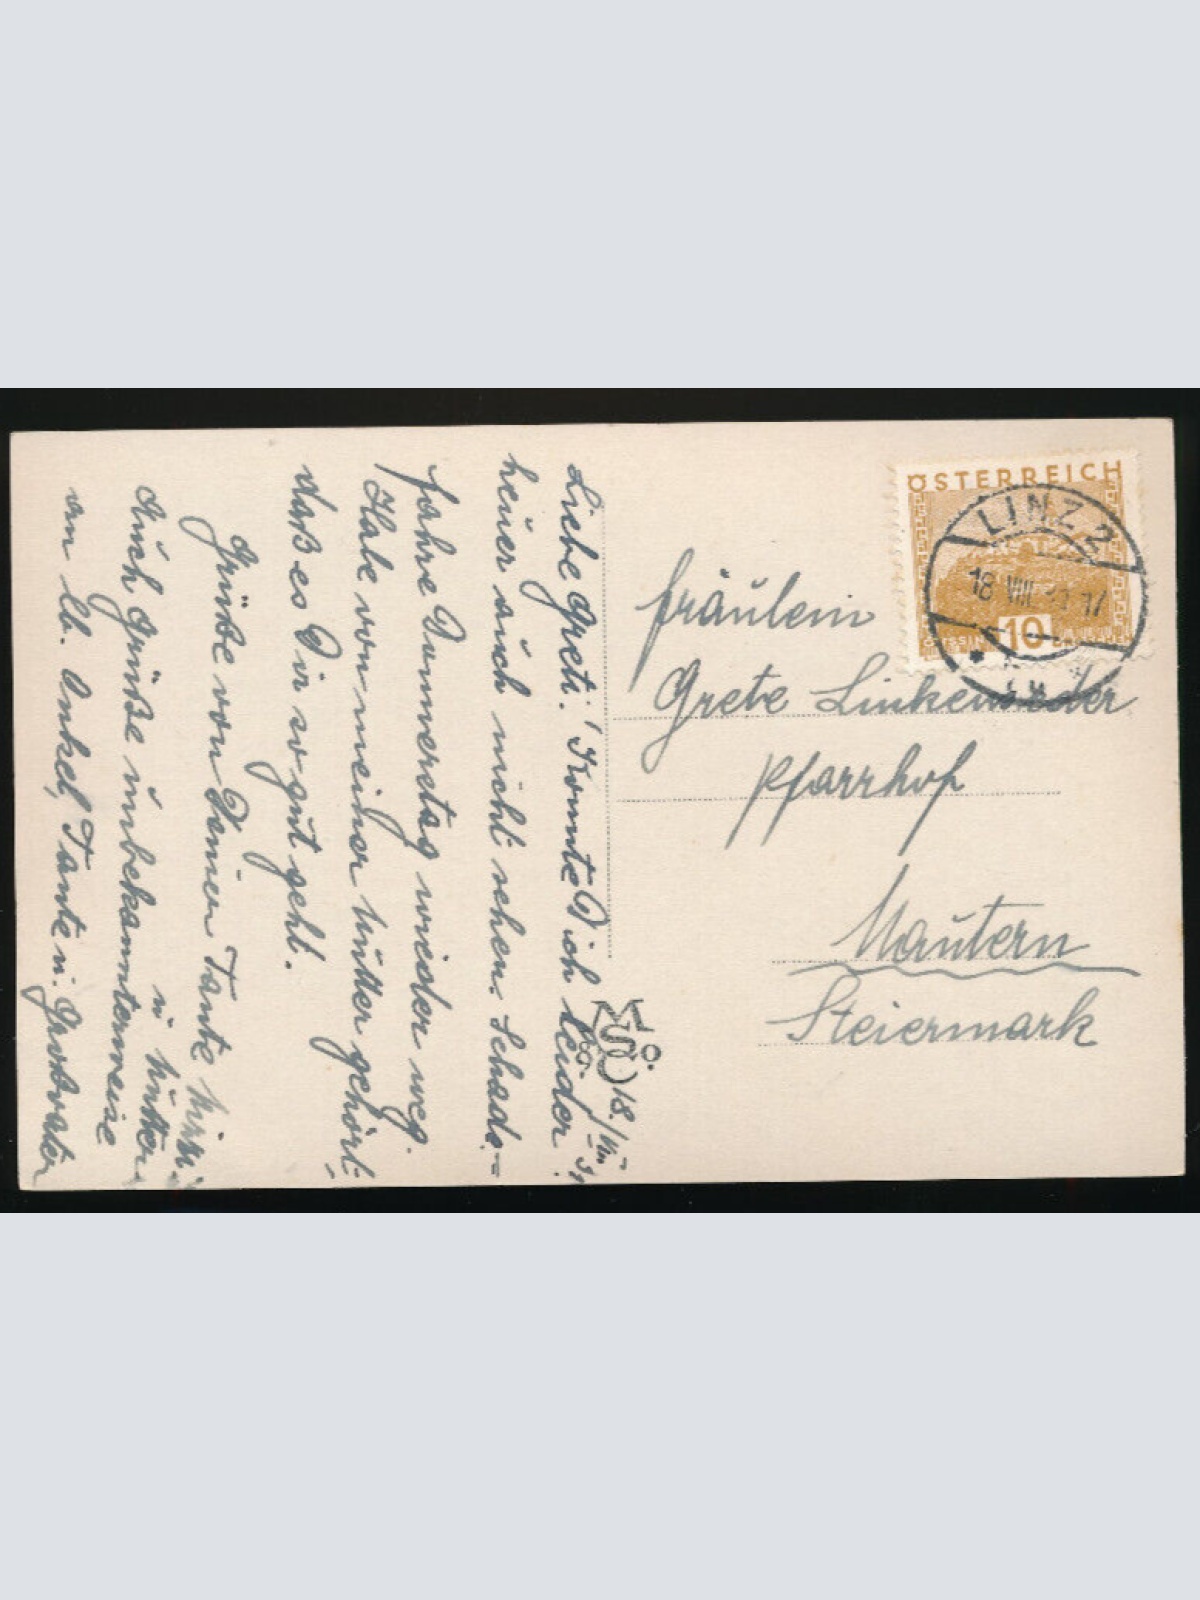 18./VIII
Liebe Greti! Konnte Dich leider
heuer auch nicht sehen. Schade. –
fahre Donnerstag wieder weg.
Habe von meiner Mutter gehört,
daß es Dir so gut geht.
Grüße von Deiner Tante
Auch Grüße u. Mutter
unbekannterweise
an lb. Onkel, Tante u. Großvater
ÖSTERREICH
GÜSSING
10
LINZ 2
18 VIII 17
Fräulein
Grete Linkeneder
Pfarrhof
Mautern
Steiermark